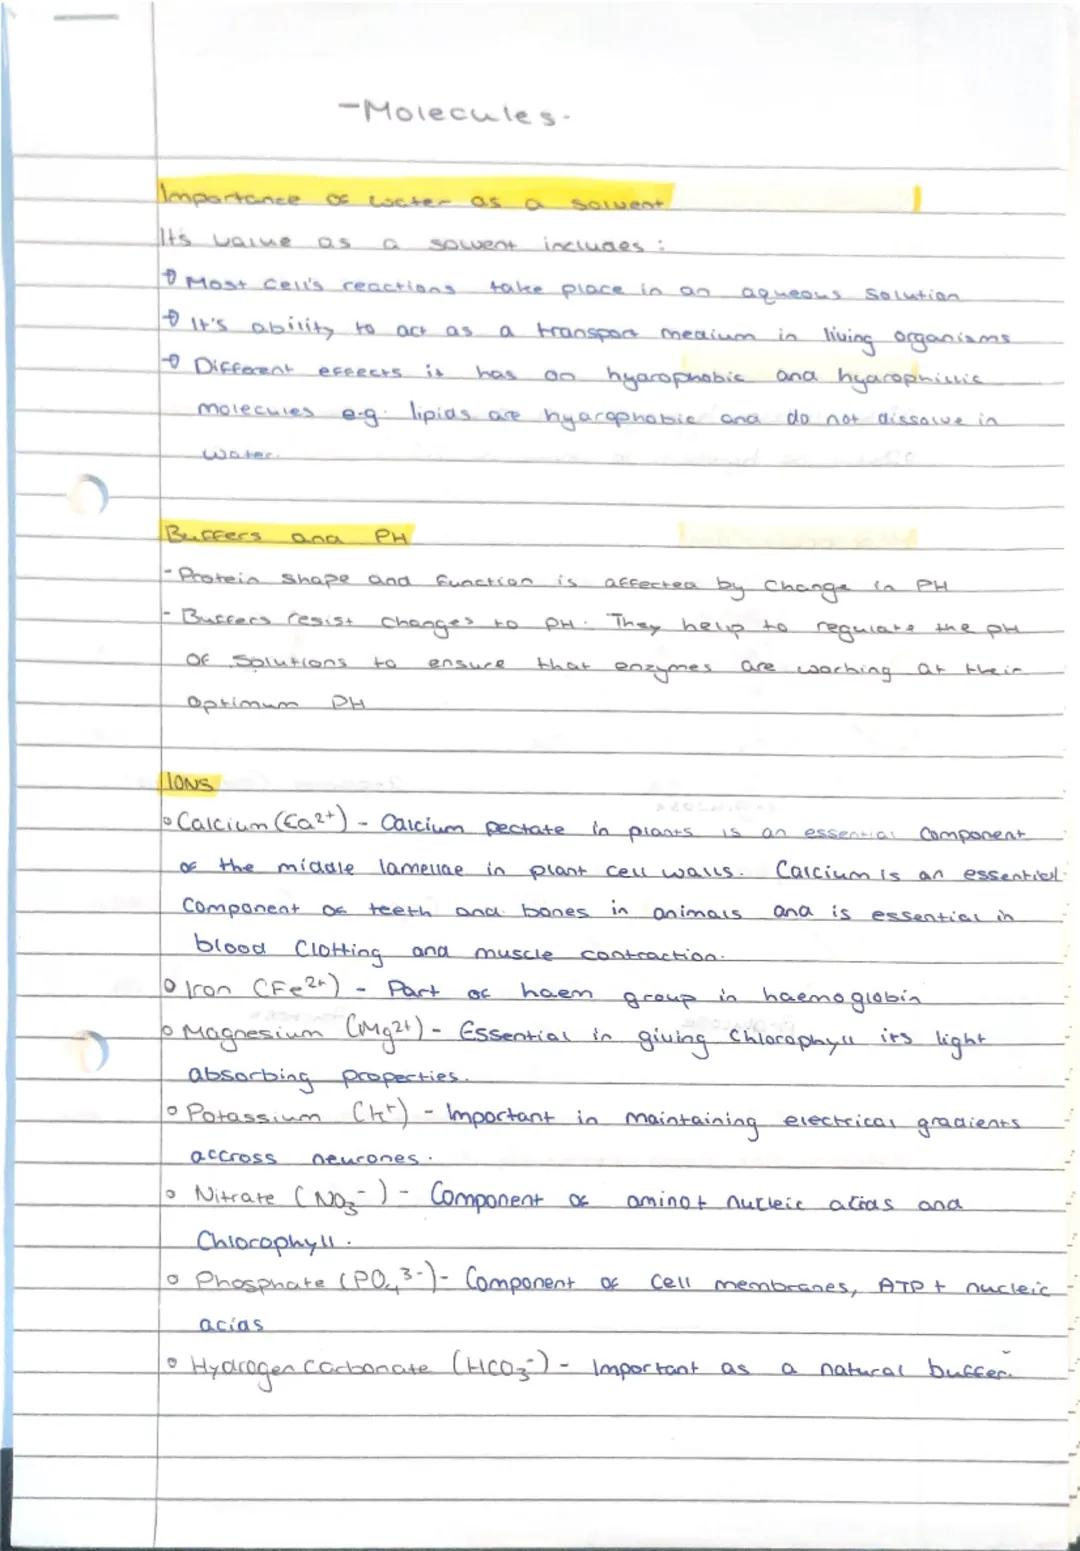 -Molecules-
Importance of water as a solvent
Its value as a solvent includes:
Most cell's reactions take place in an aqueous solution
It's ability to act as a transport medium in living organisms
Different effects it has on hydrophobic and hydrophillic
molecules e.g. lipids are hydrophobic and do not dissolve in
water.
Buffers and PH
- Protein shape and function is affected by change in PH
- Buffers resist changes to pH. They help to regulate the pH
of solutions to ensure that enzymes are working at their
optimum PH
IONS
Calcium (Ca2+) - Calcium pectate in plants is an essential component
of the middle lamellae in plant cell walls. Calcium is an essential
component of teeth and bones in animals and is essential in
blood clotting and muscle contraction.
Iron (Fe2+) - Part of haem group in haemoglobin
Magnesium (Mg2+) - Essential in giving chlorophyll its light
absorbing properties.
Potassium (K+) - Important in maintaining electrical gradients
accross neurones.
Nitrate (NO3-) - Component of amino + nucleic acids and
Chlorophyll.
Phosphate (PO4 3-) - Component of cell membranes, ATP + nucleic
acids
Hydrogen carbonate (HCO3-) - Important as a natural buffer.